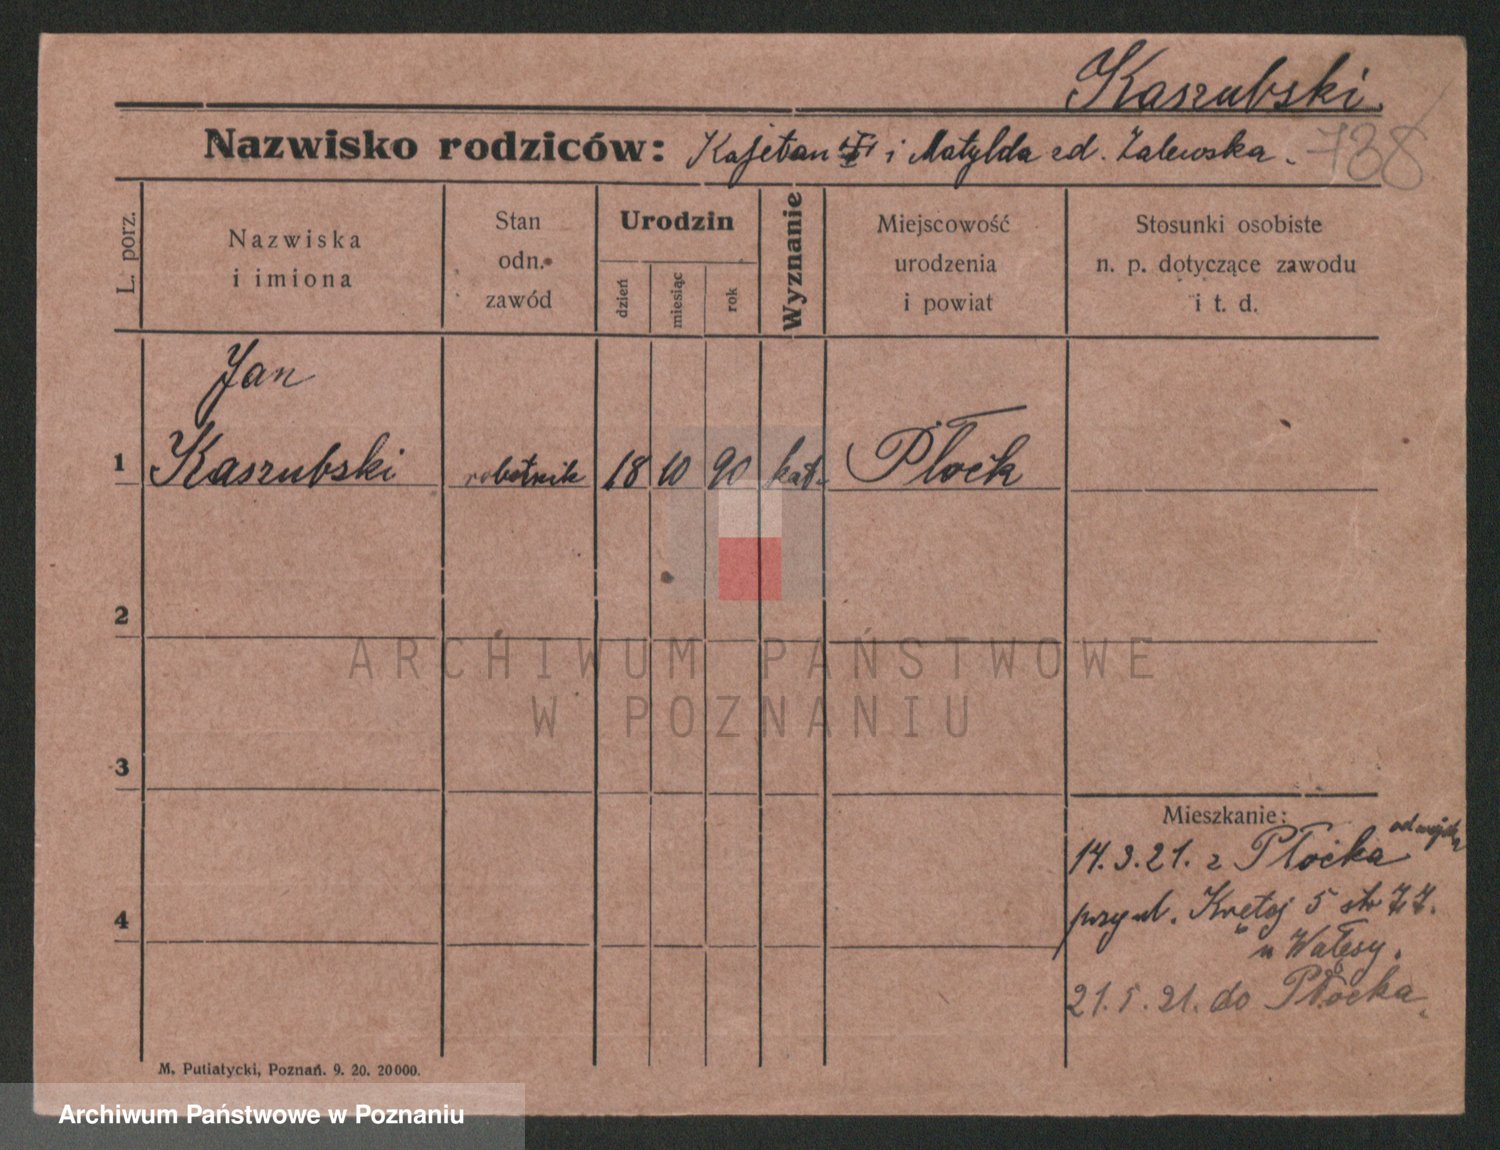 Kaszubski
738
Nazwisko rodziców: Kajetan i Matylda zd. Zalewska
L. porz.
Nazwiska
i imiona
Stan
odn.
zawód
Urodzin
dzień
miesiąc
rok
Wyznanie
Miejscowość
urodzenia
i powiat
Stosunki osobiste
n. p. dotyczące zawodu
i t. d.
Jan
1 Kaszubski robotnik 18 10 90 kat. Płock
2
ARCHIWUM PAŃSTWOWE
W POZNANIU
3
Mieszkanie:
od wojska
14.3.21. z Płocka
przy ul. Krętej 5 str
4
u Wałęsy.
21.5.21. do Płocka.
M. Putiatycki, Poznań. 9. 20. 20000.
Archiwum Państwowe w Poznaniu